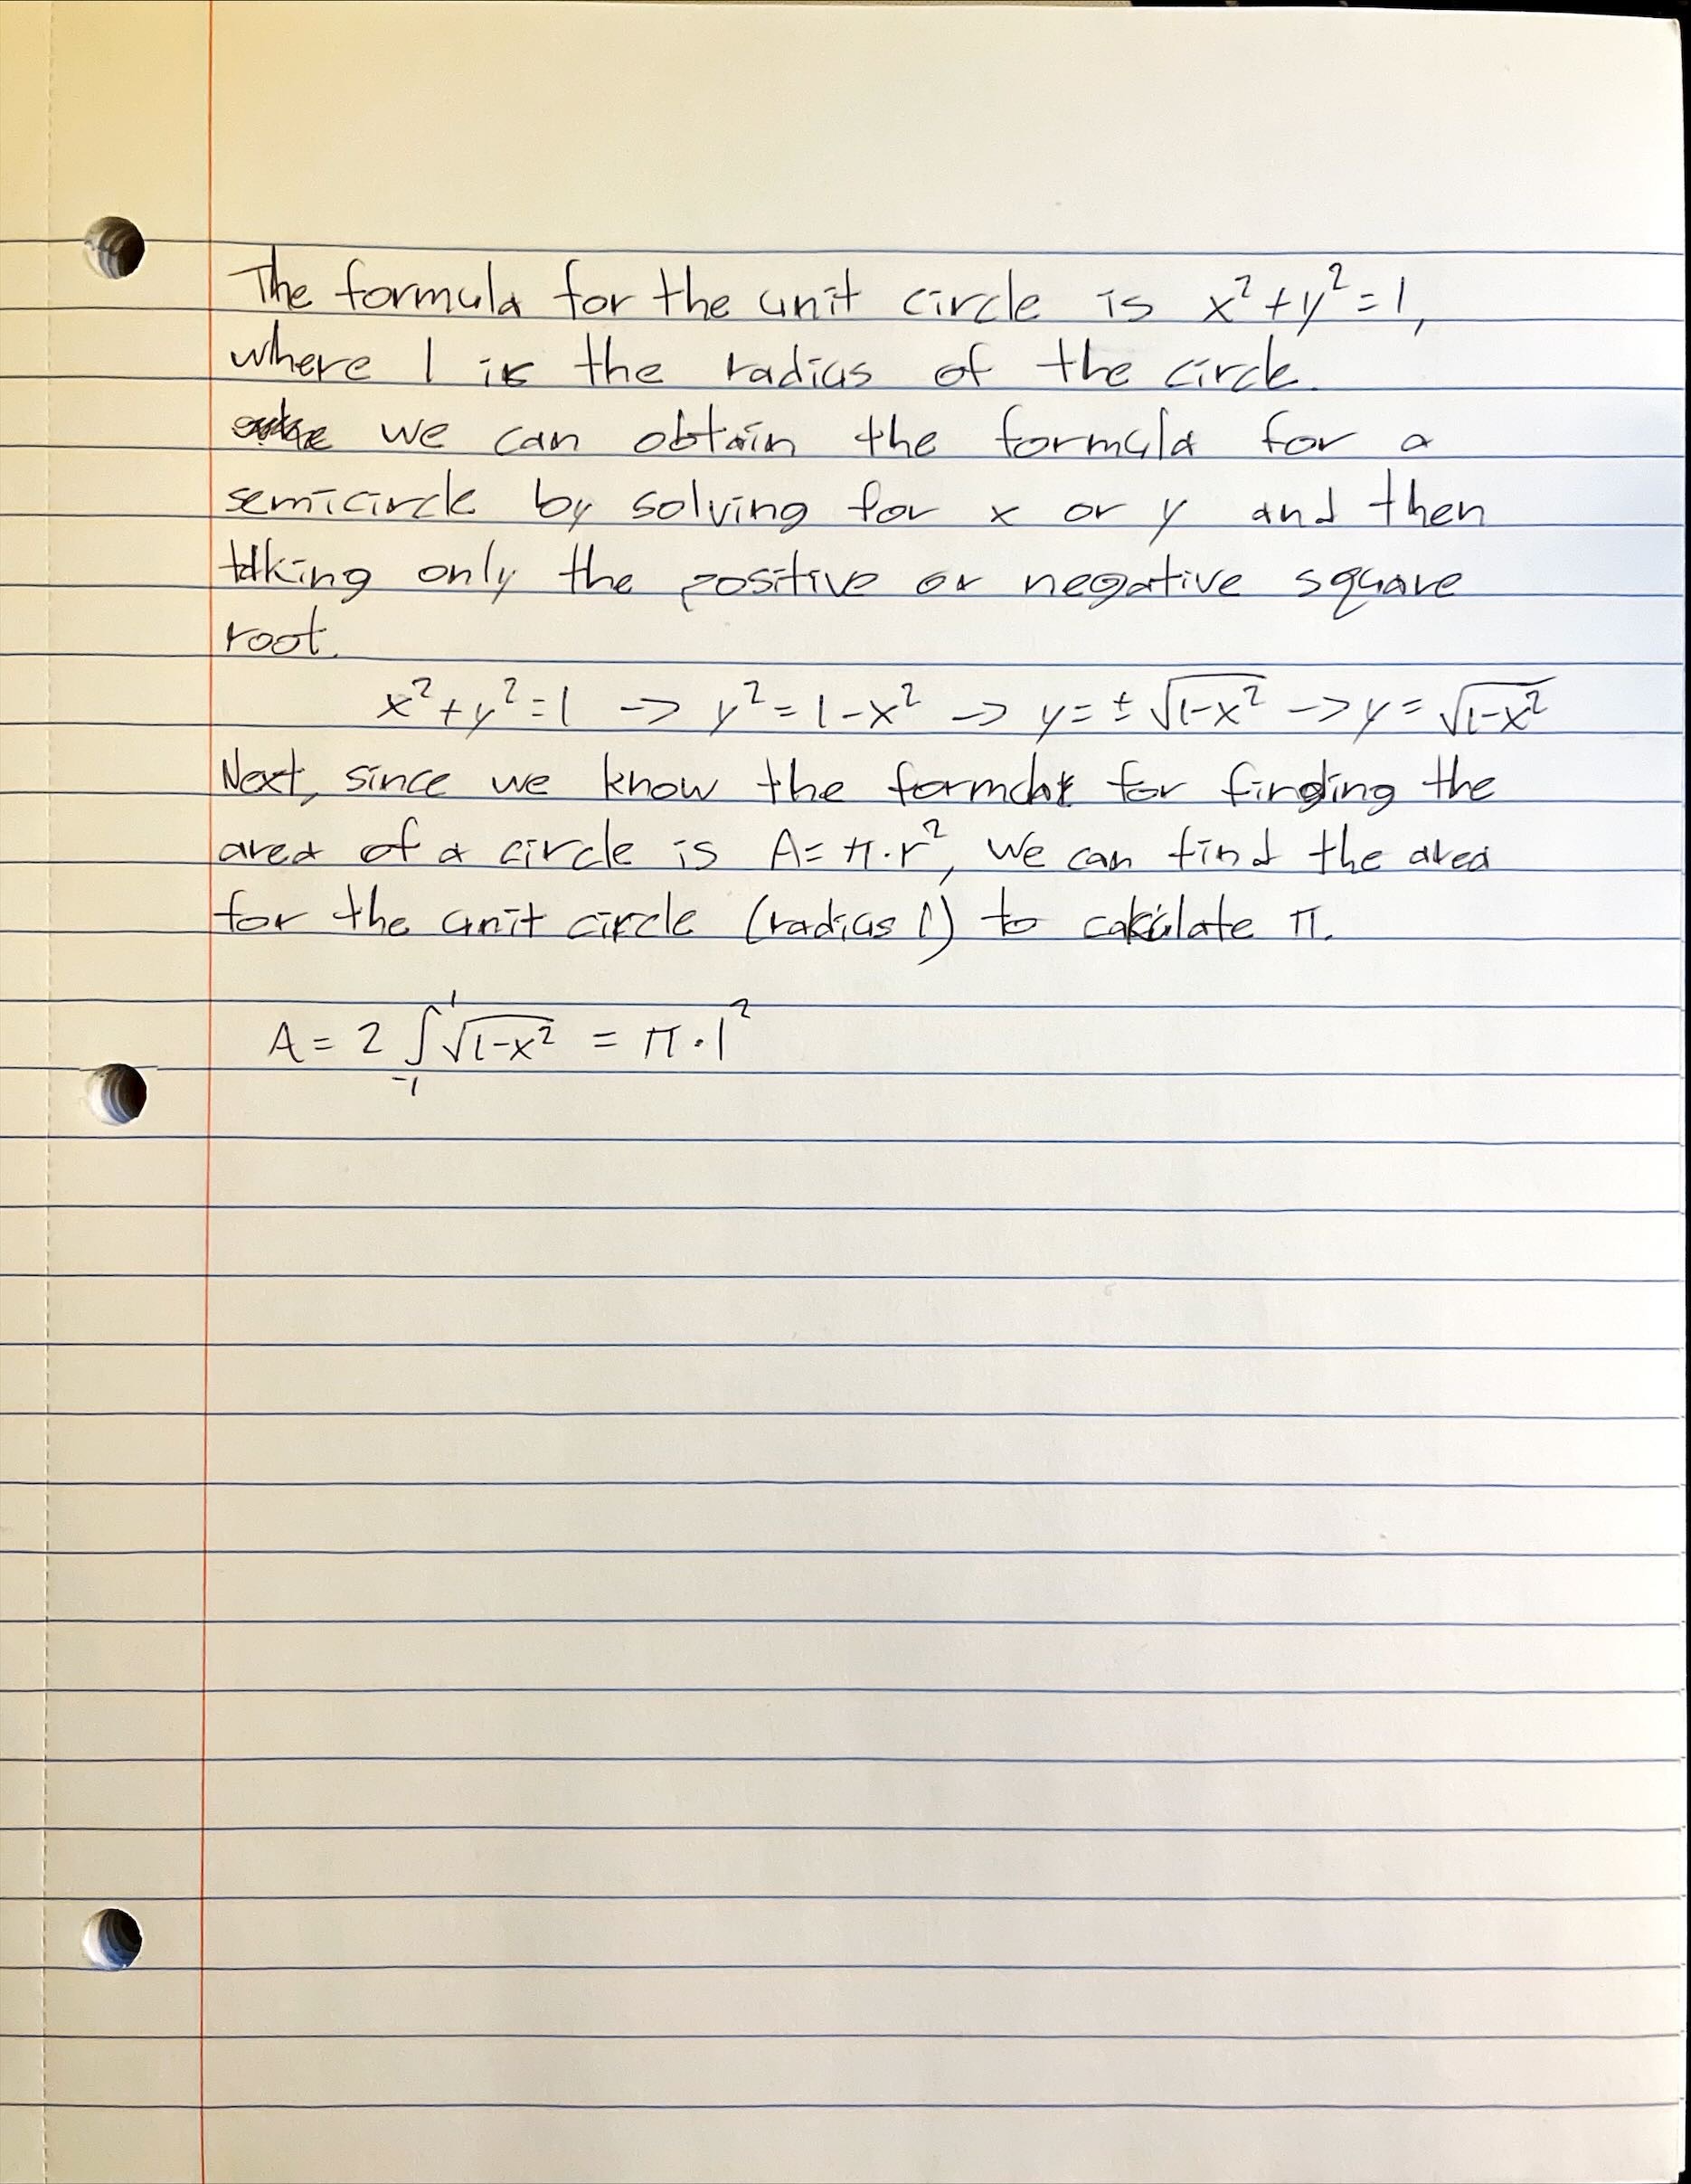 The formula for the unit circle is x²+y²=1,
where 1 is the radius of the circle.
we can obtain the formula for a
semicircle by solving for x or y and then
taking only the positive or negative square
root.
x²+y²=1 -> y²=1-x² -> y=±√(1-x²) -> y=√(1-x²)
Next, since we know the for finding the
area of a circle is A=π·r², we can find the area
for the unit circle (radius 1) to calculate π.
A = 2 ∫₋₁¹ √(1-x²) = π·1²